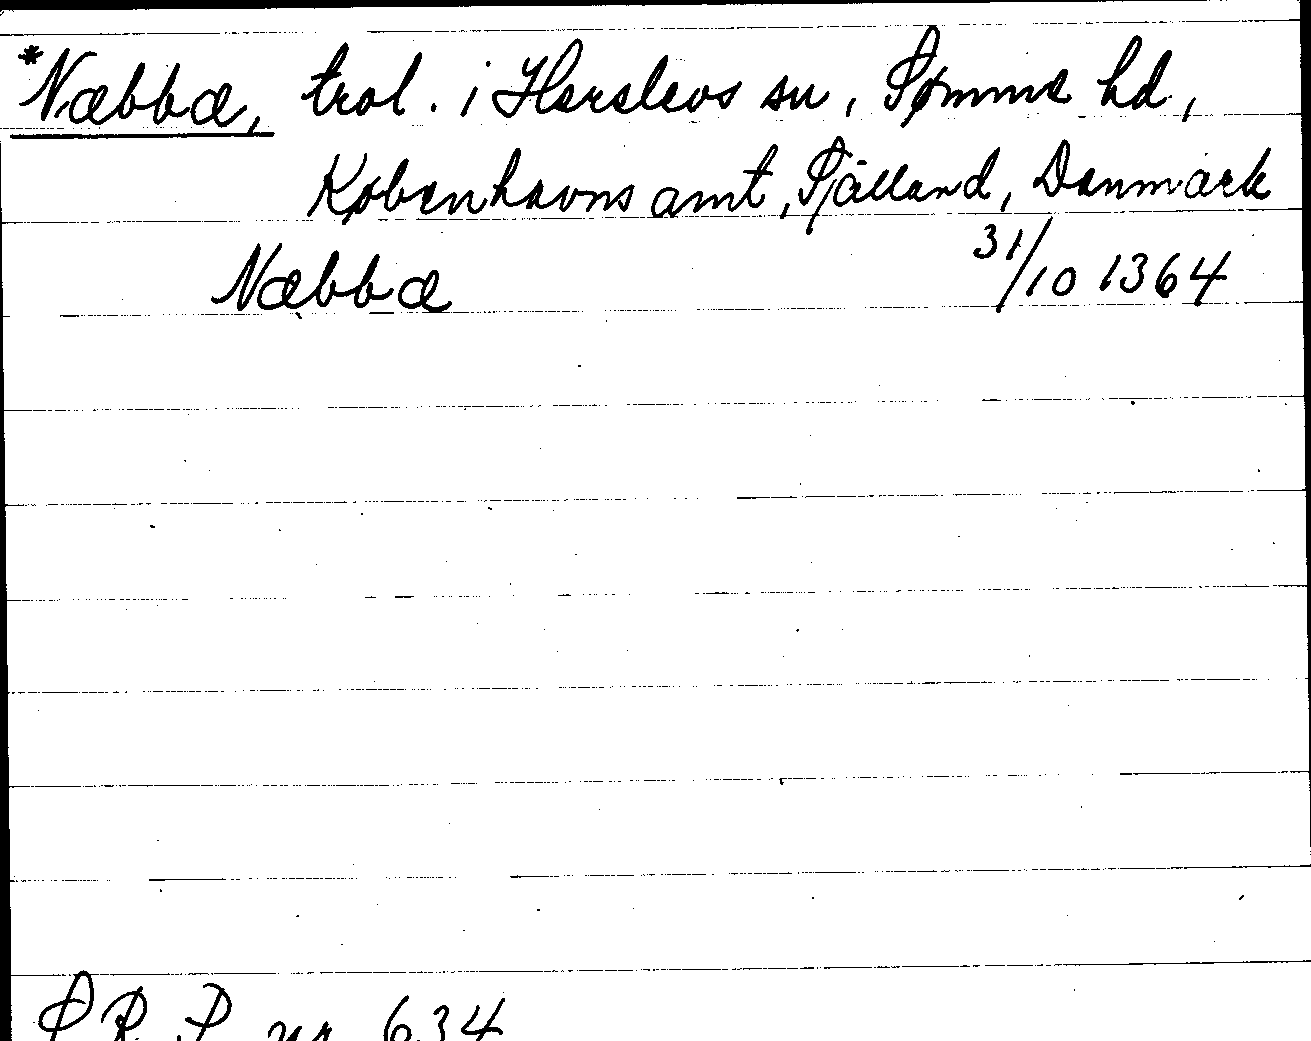 *Næbbæ, trol. i Herslevs sn, Sømme hd,
Københavns amt, Själland, Danmark
Næbbæ 31/10 1364
SRP nr 634